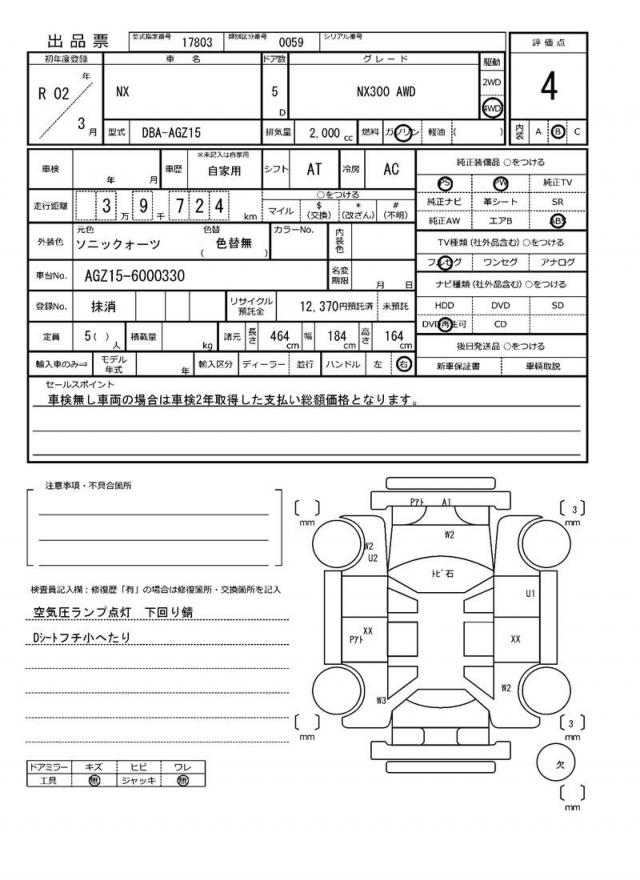 出品票 型式指定番号 17803 類別区分番号 0059 シリアル番号
初年度登録 車名 ドア数 グレード 駆動 評価点
R 02 年 3 月 NX 5 D NX300 AWD 2WD 4WD 4
型式 DBA-AGZ15 排気量 2,000 cc 燃料 ガソリン 軽油 ( ) 内装 A B C
車検 年 月 車歴 ※未記入は自家用 自家用 シフト AT 冷房 AC
走行距離 3 万 9 千 7 2 4 km ○をつける マイル $ (交換) * (改ざん) # (不明)
外装色 元色 ソニックォーツ 色替 ( 色替無 ) カラーNo. 内装色
車台No. AGZ15-6000330 名変期限 月 日
登録No. 抹消 リサイクル預託金 12,370円預託済 未預託
定員 5( ) 人 積載量 kg 諸元 長さ 464 cm 幅 184 cm 高さ 164 cm
輸入車のみ⇒ モデル年式 年 輸入区分 ディーラー 並行 ハンドル 左 右
純正装備品 ○をつける
PS PW 純正TV
純正ナビ 革シート SR
純正AW エアB ABS
TV種類 (社外品含む) ○をつける
フルセグ ワンセグ アナログ
ナビ種類 (社外品含む) ○をつける
HDD DVD SD
DVD再生可 CD
後日発送品 ○をつける
新車保証書 車輌取説
セールスポイント
車検無し車両の場合は車検2年取得した支払い総額価格となります。
注意事項・不具合箇所
検査員記入欄：修復歴「有」の場合は修復箇所・交換箇所を記入
空気圧ランプ点灯 下回り錆
Dｼｰﾄフチ小へたり
ドアミラー キズ ヒビ ワレ
工具 無 ジャッキ 無
Pｱﾄ A1
[ ] mm
[ 3 ] mm
W2
W2
U2
ﾄﾋﾞ石
U1
XX
Pｱﾄ
XX
W3
W2
[ ] mm
[ 3 ] mm
欠
[ ] mm